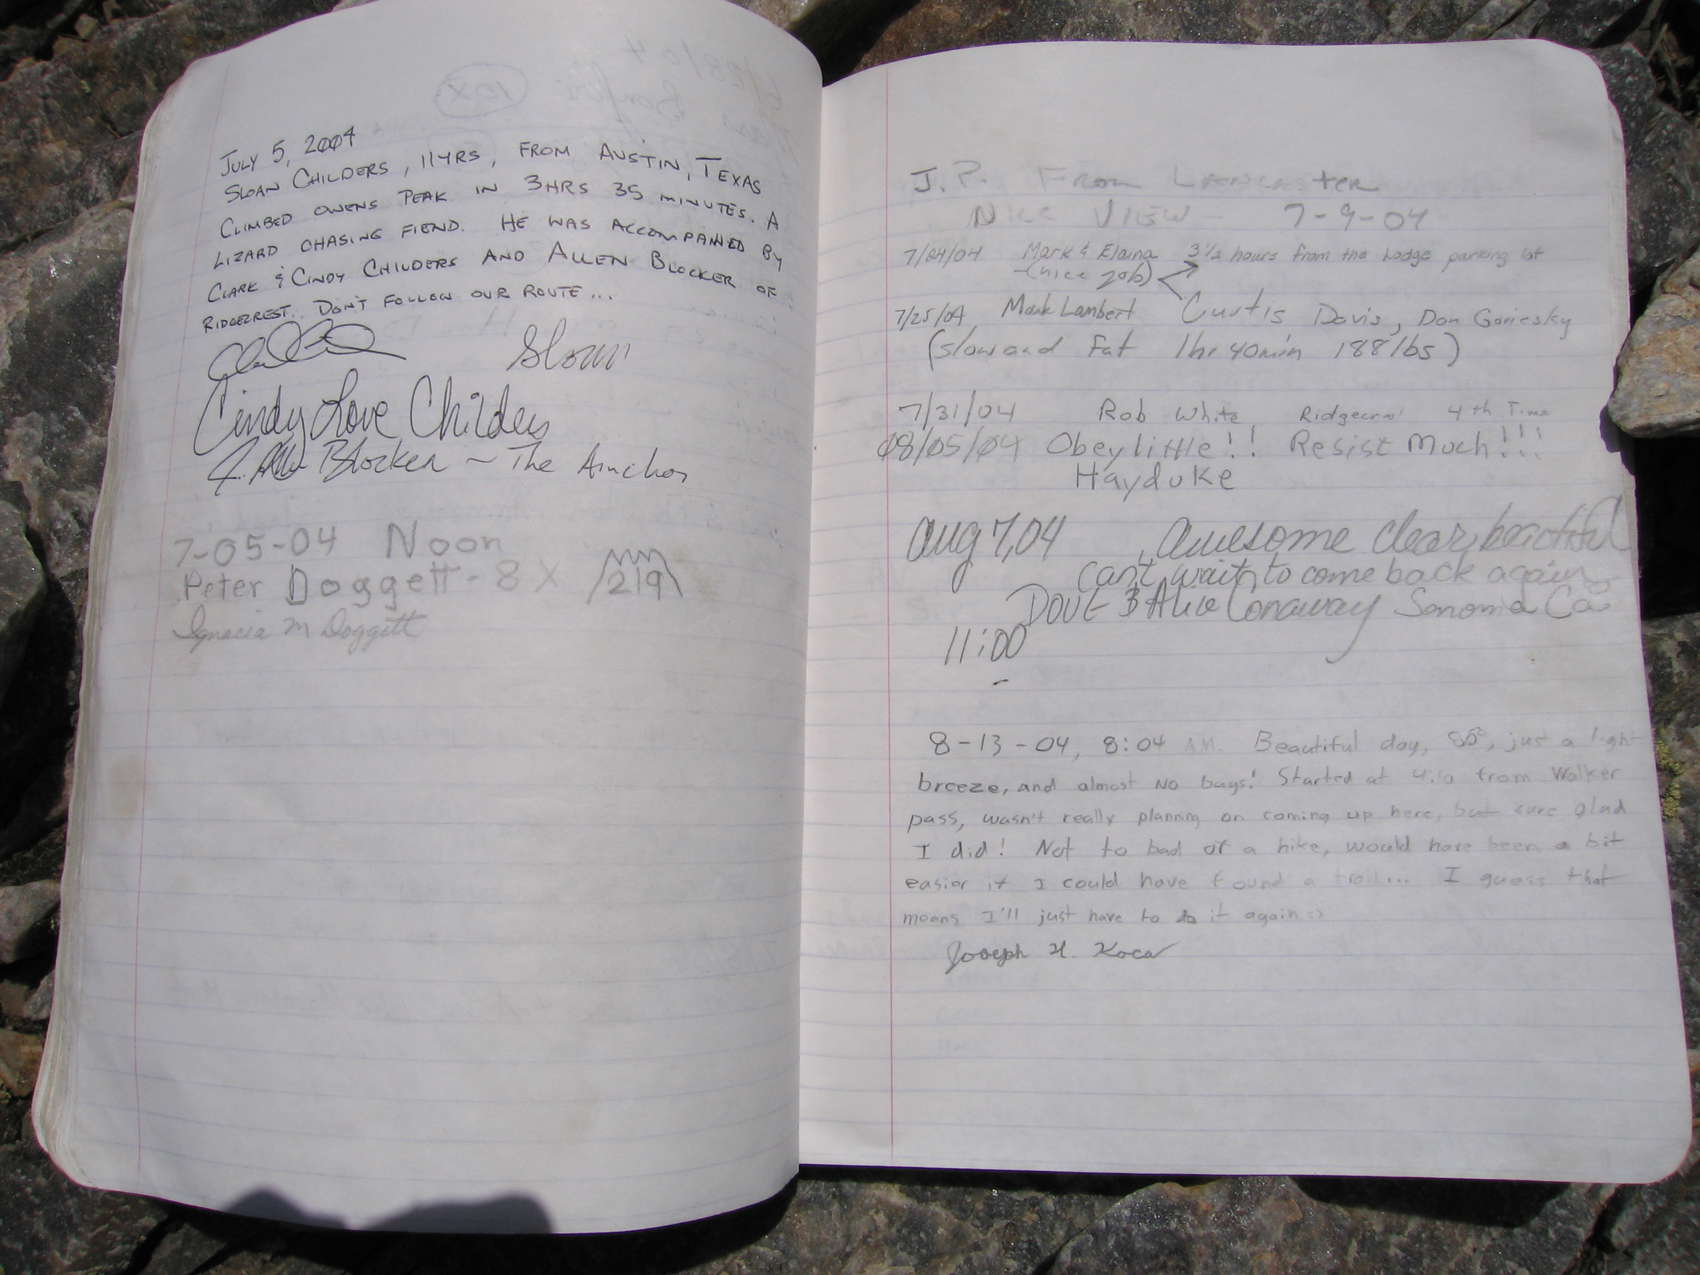 July 5, 2004
Sloan Childers, 11yrs, from Austin, Texas
climbed Owens Peak in 3hrs 35 minutes. A
lizard chasing fiend. He was accompanied by
Clark & Cindy Childers and Allen Blocker of
Ridgecrest. Don't follow our route...
Sloan
Cindy Love Childers
J. Allen Blocker ~ The Anchor
7-05-04 Noon
Peter Doggett - 8 X 219
Ignacia M Doggett
J.P. From Lancaster
Nice View 7-9-04
7/24/04 Mark & Elaina 3 1/2 hours from the Lodge parking lot
(nice job)
7/25/04 Mark Lambert Curtis Davis, Don Goriesky
(slow and Fat 1hr 40min 188 lbs)
7/31/04 Rob White Ridgecrest 4th Time
08/05/04 Obey little!! Resist Much!!!
Hayduke
Aug 7, 04 Awesome clear, beautiful
can't wait to come back again
Conaway Sonoma Ca
11:00
8-13-04, 8:04 AM. Beautiful day, just a light
breeze, and almost no bugs! Started at from Walker
pass, wasn't really planning on coming up here, but sure glad
I did! Not to bad of a hike, would have been a bit
easier if I could have found a trail... I guess that
means I'll just have to do it again :)
Joseph H. Koca